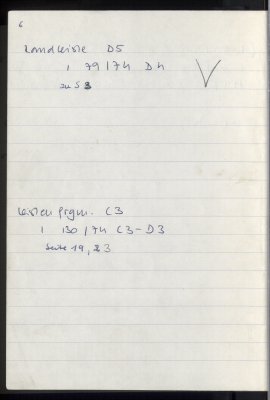 6
Randleiste D5
1 79/74 D4
zu S 3
Leisten frgm. C3
1 130/74 C3-D3
Seite 19, 23